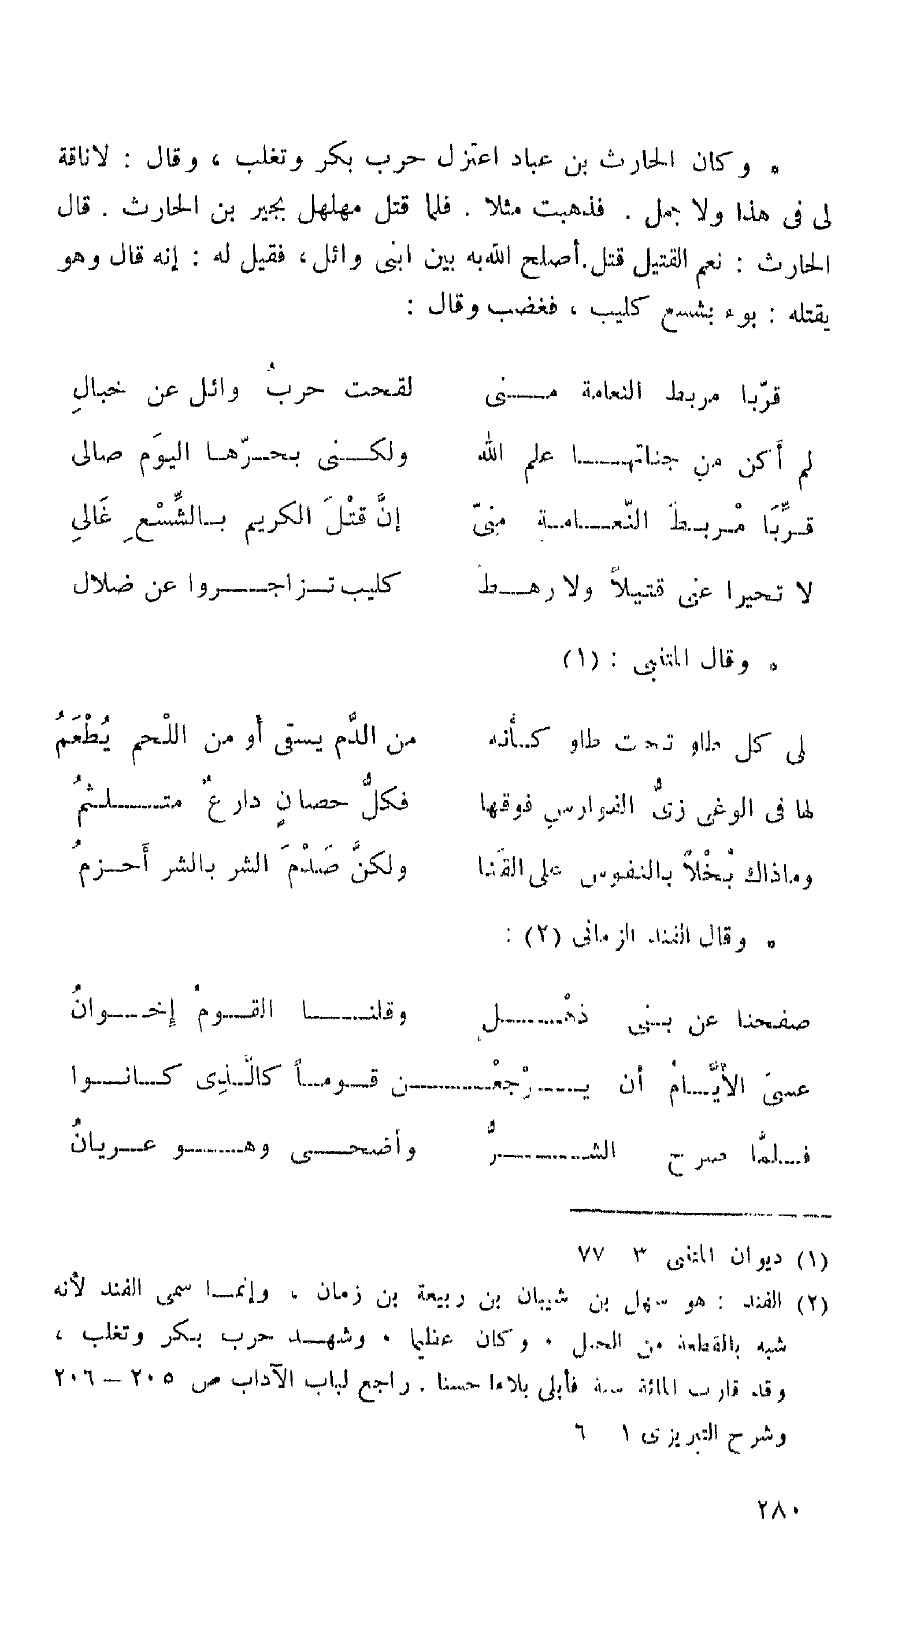 * وكان الحارث بن عباد اعتزل حرب بكر وتغلب ، وقال : لاناقة
لى فى هذا ولا جمل . فذهبت مثلا . فلما قتل مهلهل بجير بن الحارث . قال
الحارث : نعم القتيل قتل.أصلح الله به بين ابنى وائل، فقيل له : إنه قال وهو
يقتله : بوء بشسع كليب ، فغضب وقال :
قرّبا مربط النعامة منى لقحت حربُ وائل عن خبالِ
لم أكن من جناتها علم الله ولكنى بحرّها اليوَم صالى
قرِّبَا مْربطَ النّعامة منىّ إنَّ قتْلَ الكريم بالشِّسْعِ غَالىِ
لا تحيرا عنى قتيلاً ولا رهط كليب تزاجروا عن ضلال
* وقال المتنبى : (١)
لى كل طاو تحت طاو كأنه من الدَّم يسقى أو من اللْحم يُطْعَمُ
لها فى الوغى زىُّ الفوارسِ فوقها فكلُّ حصانٍ دارعٌ متلثمُ
وماذاك بُخْلاً بالنفوس على القَنا ولكنَّ صَدْمَ الشر بالشر أَحزمُ
* وقال الفند الزمانى (٢) :
صفحنا عن بنى ذهْلٍ وقلنا القومُ إخوانُ
عسىَ الأيَّامُ أن يرْجعْن قوماً كالّذِى كانوا
فلمَّا صرح الشرُّ وأضحى وهو عريانُ
(١) ديوان المتنبى ٣ ٧٧
(٢) الفند : هو سهل بن شيبان بن ربيعة بن زمان ، وإنما سمى الفند لأنه
شبه بالقطعة من الجبل ٠ وكان عظيما ٠ وشهد حرب بكر وتغلب ،
وقد قارب المائة سنة فأبلى بلاءا حسنا . راجع لباب الآداب ص ٢٠٥ – ٢٠٦
وشرح التبريزى ١ ٦
٢٨٠